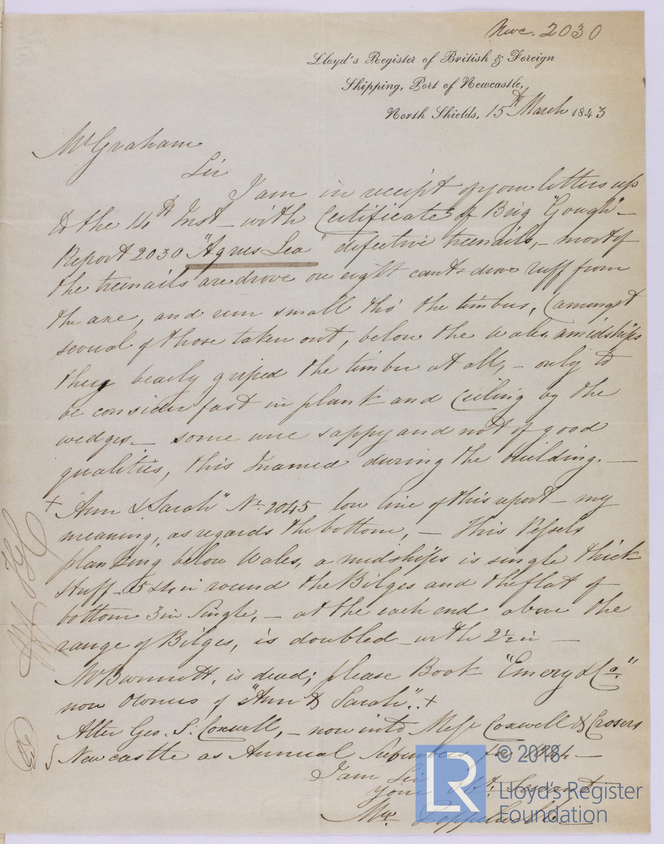 Nwc. 2030
Lloyd's Register of British & Foreign
Shipping, Port of Newcastle,
North Shields, 15th March 1843
Mr Graham
Sir
I am in receipt of your letters up
to the 14th Inst - with Certificate of Brig "Gough" -
Report 2030 "Agnes Lea" defective treenails, - most of
the treenails are drove on eight cants drove ruff from
the axe, and run small thro' the timbers, (amongst
several of those taken out, below the Wales amidships
they bearly griped the timber at all, - only to
be consider fast in plank and Ceiling by the
wedges - some were sappy and not of good
qualities, this I named during the building. -
+ "Ann & Sarah" No. 2045 low line of this report - my
meaning, as regards the bottom, - This Vessels
planking below Wales, amidships is single thick
Stuff - in round the Bilges and the flat of
bottom 3 in Single, - at the each end above the
range of Bilges, is doubled with 2½ in -
Mr is dead; please Book "Emery & Co."
now Owners of "Ann & Sarah". +
Alter Geo. S. Coxwell, - now into Messr Coxwell &
Newcastle as Annual
I am Sir
Your Obt. Servant
© 2018
LR
Lloyd's Register
Foundation